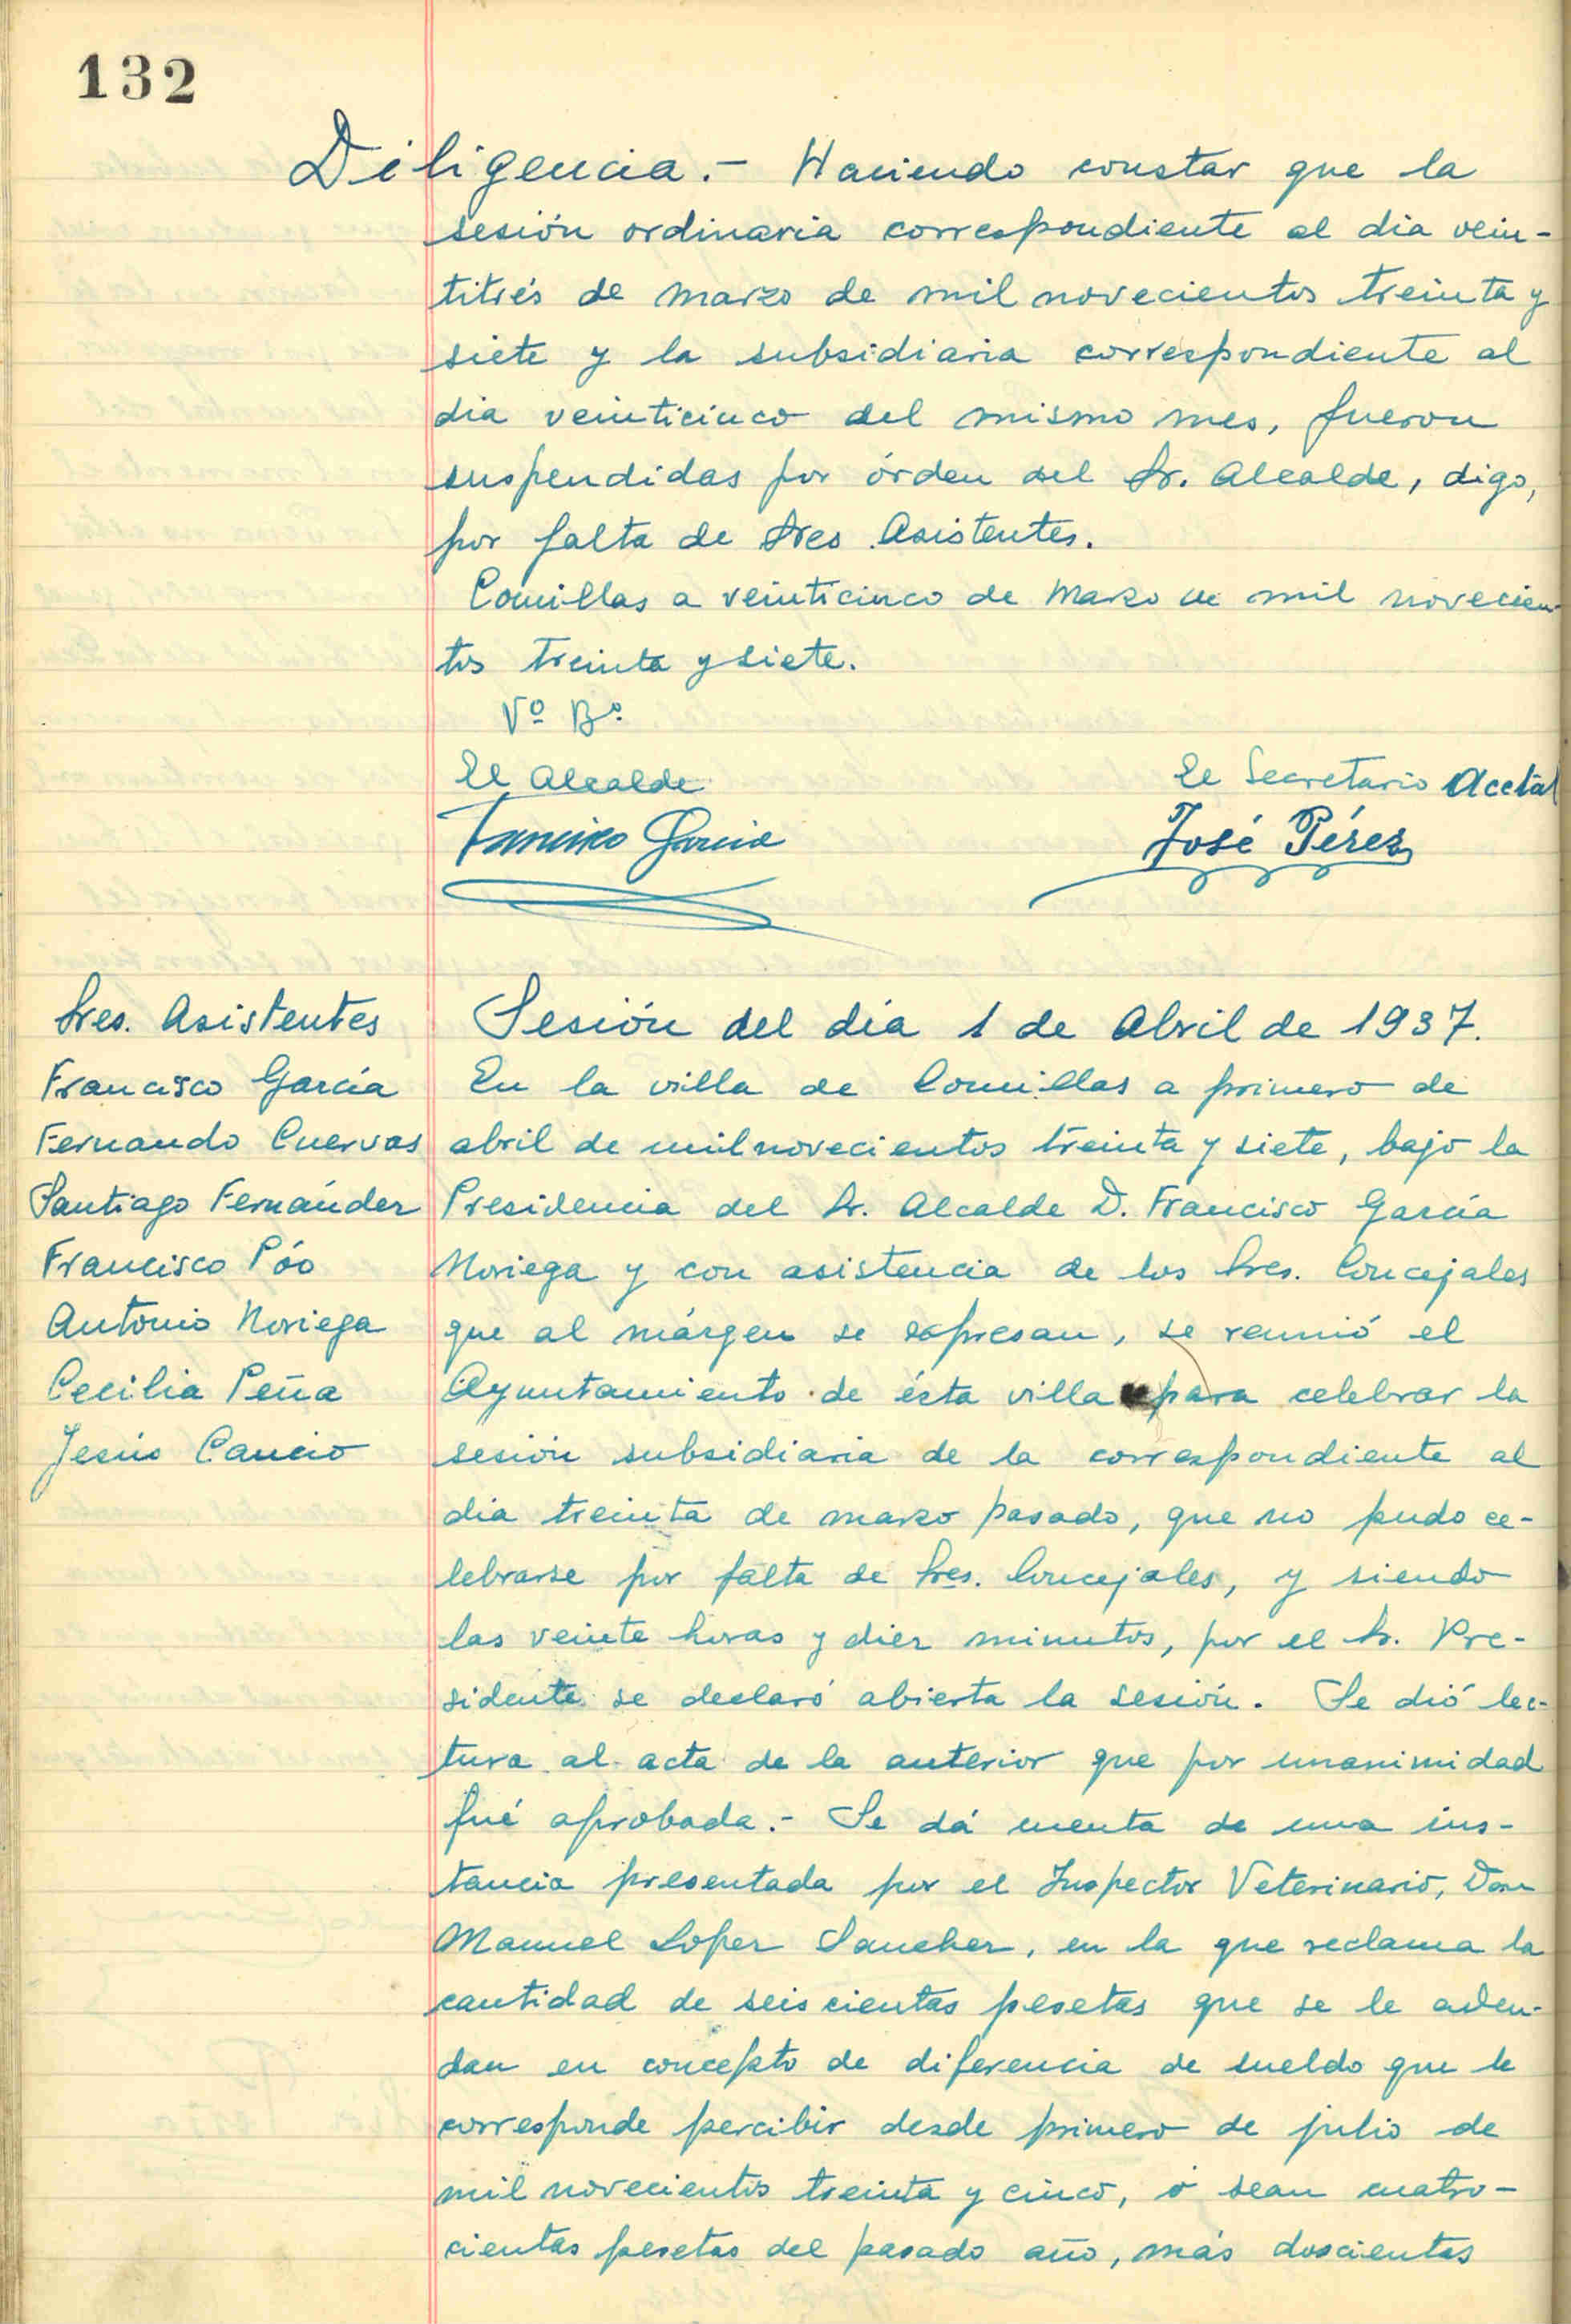 132
Diligencia.- Haciendo constar que la
sesión ordinaria correspondiente al dia vein-
titrés de marzo de mil novecientos treinta y
siete y la subsidiaria correspondiente al
dia veinticinco del mismo mes, fueron
suspendidas por órden del Sr. Alcalde, digo,
por falta de Sres. Asistentes.
Comillas a veinticinco de Marzo de mil novecien-
tos treinta y siete.
Vº Bº
El Alcalde
El Secretario Acctal
Francisco Garcia
José Pérez
Sres. Asistentes
Francisco García
Fernando Cuervas
Santiago Fernández
Francisco Póo
Antonio Noriega
Cecilia Peña
Jesús Cancio
Sesión del día 1 de Abril de 1937.
En la villa de Comillas a primero de
abril de mil novecientos treinta y siete, bajo la
Presidencia del Sr. Alcalde D. Francisco García
Noriega y con asistencia de los Sres. Concejales
que al márgen se expresan, se reunió el
Ayuntamiento de ésta villa para celebrar la
sesión subsidiaria de la correspondiente al
dia treinta de marzo pasado, que no pudo ce-
lebrarse por falta de Sres. Concejales, y siendo
las veinte horas y diez minutos, por el Sr. Pre-
sidente se declaró abierta la sesión. Se dió lec-
tura al acta de la anterior que por unanimidad
fué aprobada.- Se dá cuenta de una ins-
tancia presentada por el Inspector Veterinario, Don
Manuel Lopez Sanchez, en la que reclama la
cantidad de seiscientas pesetas que se le adeu-
dan en concepto de diferencia de sueldo que le
corresponde percibir desde primero de julio de
mil novecientos treinta y cinco, ó sean cuatro-
cientas pesetas del pasado año, más doscientas